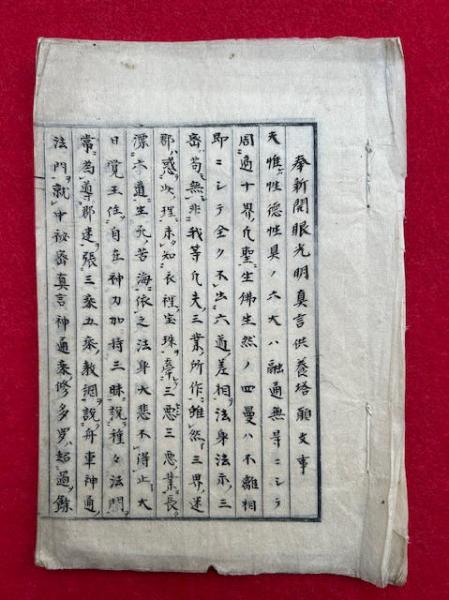 奉新開眼光明真言供養塔願文事
夫惟性德性具ノ六大ハ融通無导ニシテ
周遍十界凡聖生佛生然ノ四曼ハ不離相
即ニシテ全ク不出六道差相法身法亦三
密苟無非我等凡夫三業所作雖然三界迷
郡惑此理未知衣裡宝珠牽三惡三惡業長
漂木道生死苦海依之法身大悲不得止大
日覚王住自在神力加持三昧說種々法門
常為導郡迷張三乘五乘教網說舟車神通
法門就中祕密真言神通乘修多罗超過餘